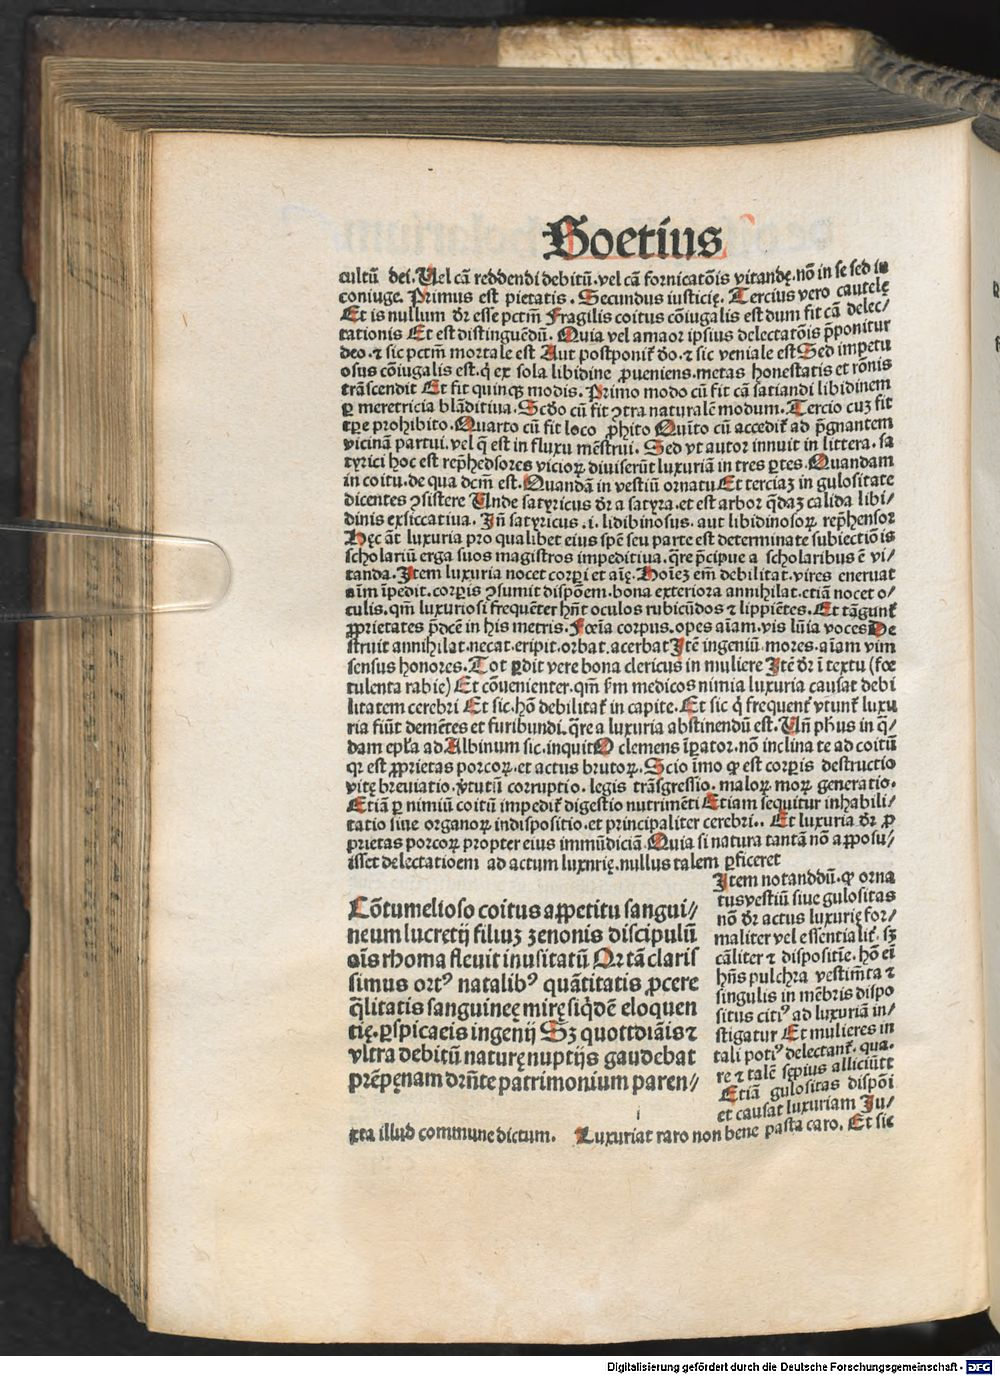 Boetius
cultū dei. Uel cā reddendi debitū. vel cā fornicatōis vitandę. nō in se sed in
coniuge. Primus est pietatis. Secundus iusticię. Tercius vero cautelę
Et is nullum dr̄ esse pctm̄ Fragilis coitus cōiugalis est dum fit cā delec/
tationis Et est distinguēdū. Quia vel amaor ipsius delectatōis p̄ponitur
deo. ⁊ sic pctm̄ mortale est Aut postponit̄ deo. ⁊ sic veniale est Sed impetu
osus cōiugalis est. q̇ ex sola libidine ꝓueniens. metas honestatis et rōnis
trāscendit Et fit quinqꝫ modis. Primo modo cū fit cā satiandi libidinem
ꝑ meretricia blāditiua. Scdo cū fit ꝯtra naturalē modum. Tercio cuꝫ fit
tꝑe prohibito. Quarto cū fit loco ꝓhito Quīto cū accedit̄ ad p̄gnantem
vicinā partui. vel q̄ est in fluxu mēstrui. Sed vt autor innuit in littera. sa
tyrici hoc est rep̄hēdsores vicioꝝ diuiserūt luxuriā in tres ꝑtes. Quandam
in coitu. de qua dcm̄ est. Quandā in vestiū ornatu Et terciaꝫ in gulositate
dicentes ꝯsistere Unde satyricus dr̄ a satyra. et est arbor q̄daꝫ calida libi/
dinis exsiccatiua. Jn̄ satyricus .i. lidibinosus. aut libidinosoꝝ rep̄hensor
Hęc āt luxuria pro qualibet eius spē seu parte est determinate subiectiōis
scholariū erga suos magistros impeditiua. q̄re p̄cipue a scholaribus ē vi/
tanda. Jtem luxuria nocet corꝑi et aīę. Hoīeꝫ em̄ debilitat. vires eneruat
aīm īpedit. corꝑis ꝯsumit dispōem. bona exteriora annihilat. etiā nocet o/
culis. qm̄ luxuriosi frequēter hn̄t oculos rubicūdos ⁊ lippiētes. Et tāgunt̄
ꝓprietates p̄dcē in his metris. Fœīa corpus. opes aīam. vis lūīa voces De
struit annihilat. necat. eripit. orbat. acerbat Jtē ingeniū mores. aīam vim
sensus honores. Tot ꝑdit vere bona clericus in muliere Jtē dr̄ ī textu (fœ
tulenta rabie) Et cōuenienter. qm̄ fm̄ medicos nimia luxuria causat debi
litatem cerebri Et sic. hō debilitat̄ in capite. Et sic q̇ frequent̄ vtunt̄ luxu
ria fiūt demētes et furibundi. q̄re a luxuria abstinendū est. Un̄ ph̄us in q̄/
dam epl̄a ad Albinum sic. inquit O clemens īꝑator. nō inclina te ad coitū
qꝛ est ꝓprietas porcoꝝ. et actus brutoꝝ. Scio īmo ꝙ est corꝑis destructio
vitę breuiatio. v̄tutū corruptio. legis trāsgressio. maloꝝ moꝝ generatio.
Etiā ꝑ nimiū coitū impedit̄ digestio nutrimēti Etiam sequitur inhabili/
tatio siue organoꝝ indispositio. et principaliter cerebri.. Et luxuria dr̄ ꝓ
prietas porcoꝝ propter eius immūdiciā. Quia si natura tantā nō apposu/
isset delectatioem ad actum luxnrię. nullus talem ꝑficeret
Cōtumelioso coitus appetitu sangui//
neum lucretij filiuꝫ zenonis discipulū
oīs rhoma fleuit inusitatū Or̄ tā claris
simus ortꝰ natalibꝰ quātitatis ꝓcere
q̄litatis sanguineę mirę siq̇dē eloquen
tię. ꝑspicaeis ingenij Sꝫ quottdiāis ⁊
vltra debitū naturę nuptijs gaudebat
prēpęnam drn̄te patrimonium paren//
Jtem notanddū. ꝙ orna
tus vestiū siue gulositas
nō dr̄ actus luxurię for/
maliter vel essentialit̄. sꝫ
cāliter ⁊ dispositīe. hō eī
hn̄s pulchra vestim̄ta ⁊
singulis in mēbris dispo
situs citiꝰ ad luxuriā in/
stigatur Et mulieres in
tali potiꝰ delectant̄. qua.
re ⁊ talē sępius alliciūtt
Etiā gulositas dispōi
et causat luxuriam Ju/
xta illud commune dictum. Luxuriat raro non bene pasta caro. Et sic
Digitalisierung gefördert durch die Deutsche Forschungsgemeinschaft - DFG